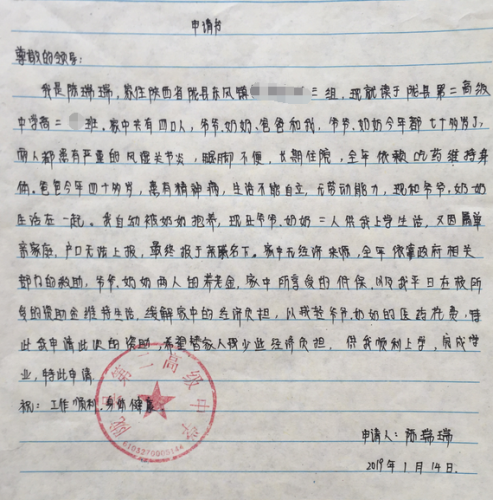 申请书
尊敬的领导:
我是陈瑞瑞,家住陕西省陇县东风镇 三组,现就读于陇县第二高级
中学高二 班。家中共有四口人,爷爷.奶奶.爸爸和我,爷爷.奶奶今年都七十多岁了,
两人都患有严重的风湿关节炎,腿脚不便,长期住院,全年依赖吃药维持身
体。爸爸今年四十多岁,患有精神病,生活不能自立,无劳动能力,现和爷爷.奶奶
生活在一起。我自幼被奶奶抱养,现由爷爷.奶奶二人供我上学生活,又因属单
亲家庭,户口无法上报,最终报于亲戚名下。家中无经济来源,全年依靠政府相关
部门的救助,爷爷.奶奶两人的养老金,家中所享受的低保,以及我平日在校所
享的资助金维持生活,缓解家中的经济负担,以及我爷爷.奶奶的医药花费,特
此我申请此次的资助,希望替家人减少些经济负担,供我顺利上学,完成学
业,特此申请.
祝:工作顺利,身体健康.
陇县第二高级中学
6103270005144
申请人:陈瑞瑞
2019年1月14日.